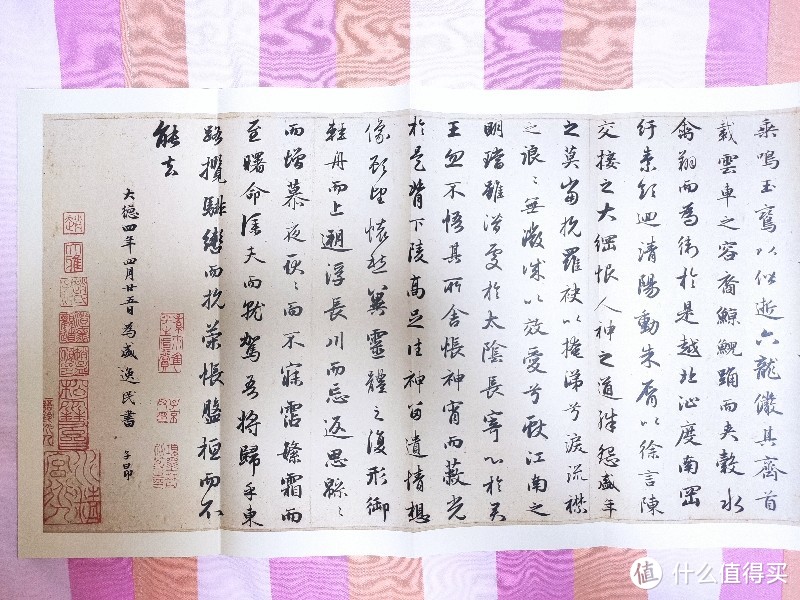 乘鳴玉鸞以偕逝六龍儼其齊首
載雲車之容裔鯨鯢踊而夾轂水
禽翔而為衛於是越北沚度南岡
紆素領迴清陽動朱脣以徐言陳
交接之大綱恨人神之道殊怨盛年
之莫當抗羅袂以掩涕兮淚流襟
之浪〻無微誠以效愛兮獻江南之
明璫雖潛處於太陰長寄心於君
王忽不悟其所舍悵神宵而蔽光
於是背下陵高足往神留遺情想
像顧望懷愁冀靈體之復形御
輕舟而上遡浮長川而忘返思緜〻
而增慕夜耿〻而不寐霑繁霜而
至曙命僕夫而就駕吾將歸乎東
路攬騑轡而抗策悵盤桓而不
能去
大德四年四月廿五日為盛逸民書 子昂
趙
大雅
值 什么值得买